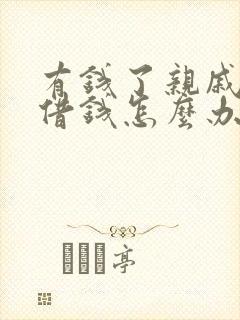 有錢了親戚
借錢怎麼办
亭